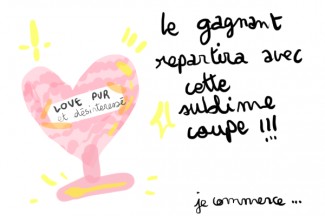 LOVE PUR
et désintéressé
le gagnant
repartira avec
cette
sublime
coupe !!!
je commence ...